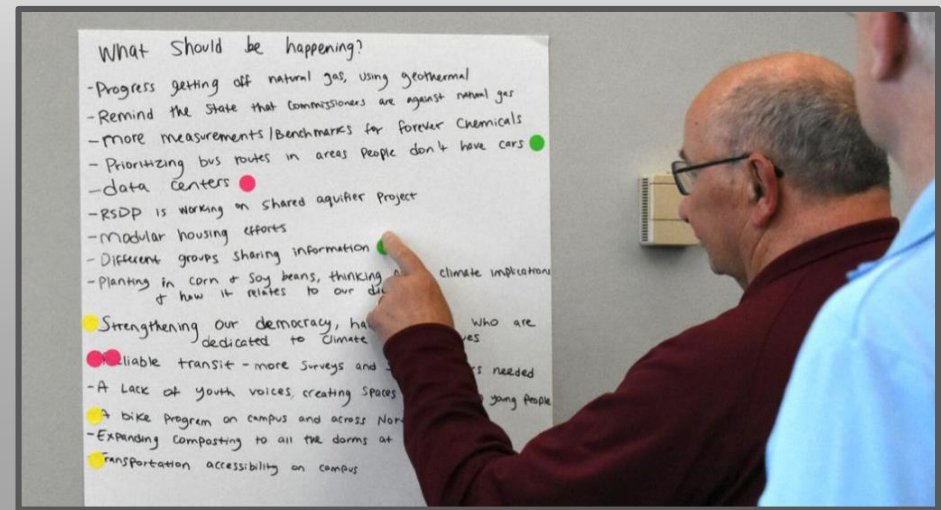 What Should be happening?
- Progress getting off natural gas, using geothermal
- Remind the State that Commissioners are against natural gas
- more measurements/Benchmarks for forever Chemicals
- Prioritizing bus routes in areas People don't have cars
- data centers
- RSDP is working on shared aquifier Project
- Modular housing efforts
- Different groups sharing information
- Planting in corn & Soy beans, thinking climate implications
& how it relates to our
Strengthening our democracy, who are
dedicated to Climate
transit - more surveys and needed
- A Lack of youth voices, creating Spaces young People
A bike program on campus and across
- Expanding composting to all the dorms at
Transportation accessibility on campus